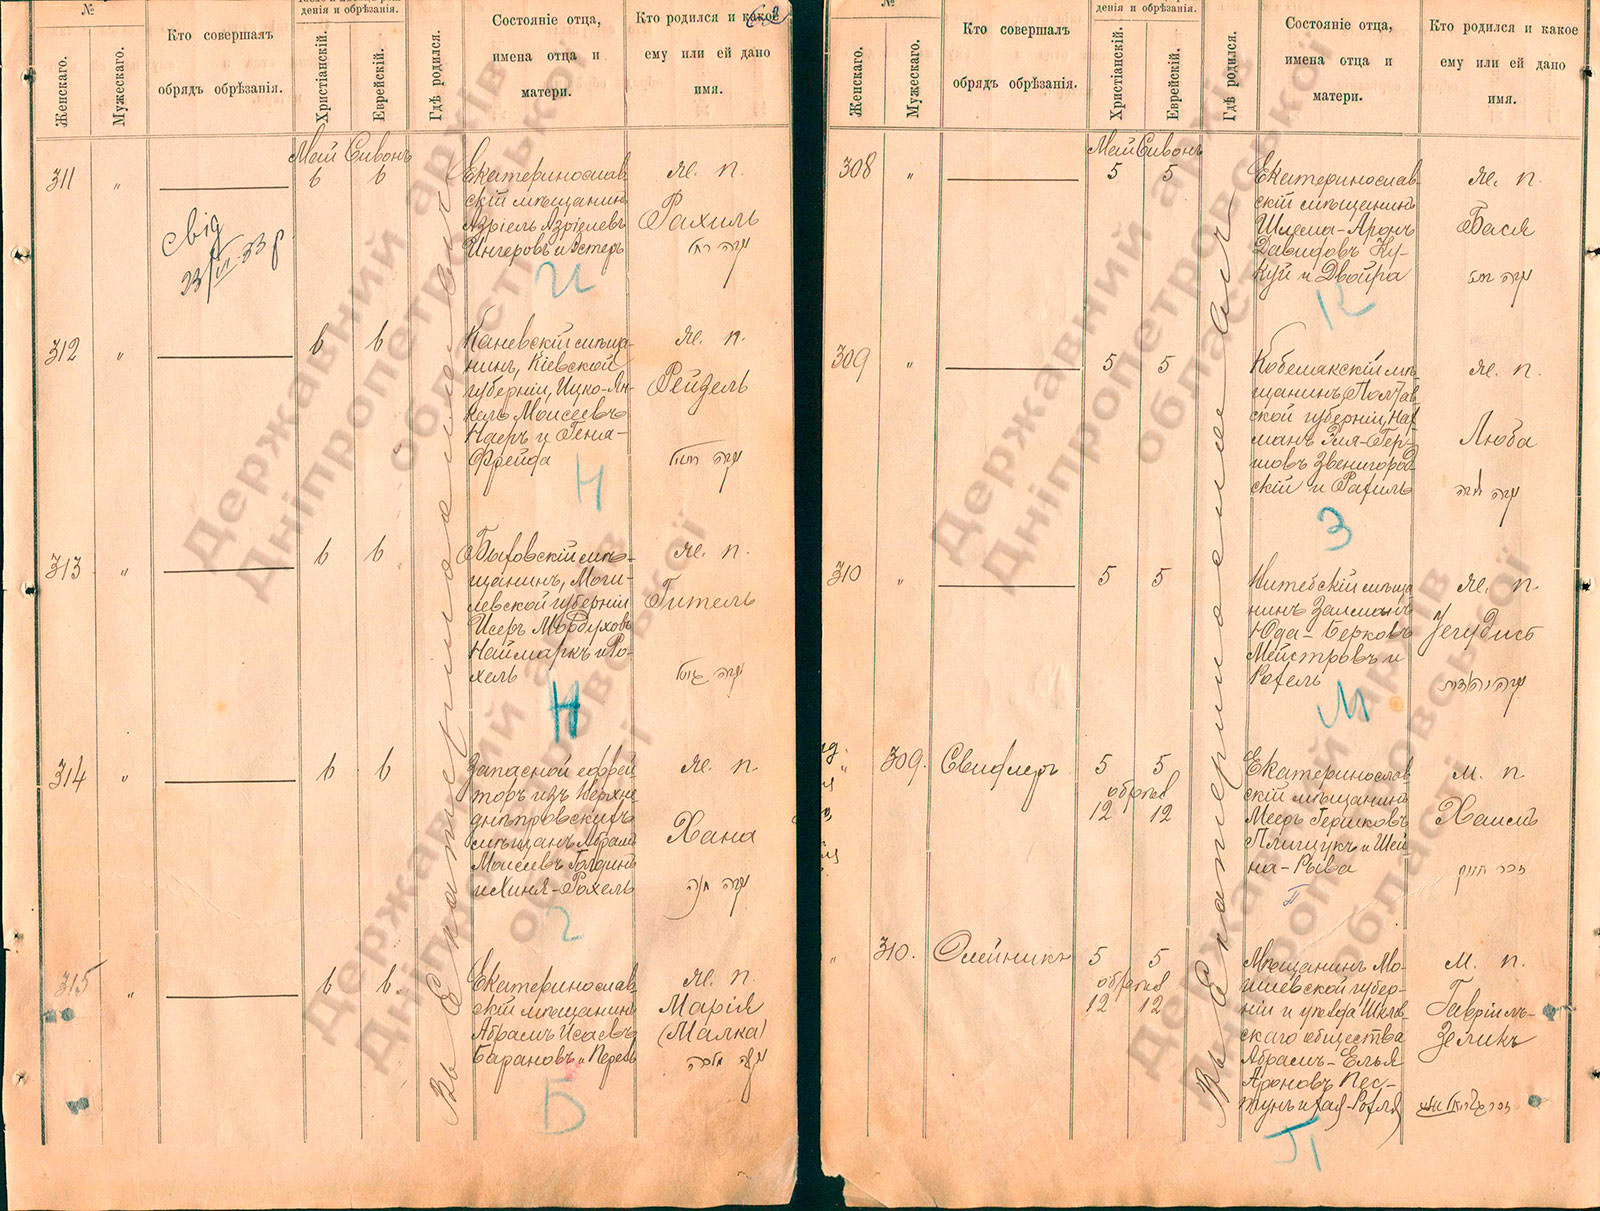 №
Женскаго.
Мужескаго.
Кто совершалъ
обрядъ обрѣзанія.
денія и обрѣзанія.
Христіанскій.
Еврейскій.
Гдѣ родился.
Состояніе отца,
имена отца и
матери.
Кто родился и какое
ему или ей дано
имя.
Май Сивонъ
311 " 6 6
Екатеринослав-
скій мѣщанинъ
Азріель Азріелевъ
Ингеровъ и Эстеръ
И
Же. п.
Рахиль
свід
312 " 6 6
Каневскій мѣща-
нинъ, Кіевской
губерніи, Ицко-Ян-
кель Моисеевъ
Наеръ и Геня-
Фрейда
Н
Же. п.
Рейзель
313 " 6 6
Быховскій мѣ-
щанинъ, Моги-
левской губерніи
Исеръ Мордуховъ
Наймаркъ и Ро-
хель
Н
Же. п.
Гитель
314 " 6 6
Запасной ефрей
торъ изъ Верхне
днѣпровскихъ
мѣщанъ Абрам
Моисеевъ Голдинъ
и Хиня-Рохель
Г
Же. п.
Хана
315 " 6 6
Екатеринослав-
скій мѣщанинъ
Абрамъ Исаевъ
Барановъ и Песевь
Б
Же. п.
Марія
(Малка)
Въ Екатеринославѣ
№
Женскаго.
Мужескаго.
Кто совершалъ
обрядъ обрѣзанія.
денія и обрѣзанія.
Христіанскій.
Еврейскій.
Гдѣ родился.
Состояніе отца,
имена отца и
матери.
Кто родился и какое
ему или ей дано
имя.
Май Сивонъ
308 " 5 5
Екатеринослав-
скій мѣщанинъ
Шлема-Аронъ
Давидовъ Ку-
куй и Двойра
К
Же. п.
Бася
309 " 5 5
Кобелякскій мѣ-
щанинъ, Полтав-
ской губерніи, Нах
манъ Эля-Гер-
шовъ Звенигород
скій и Рахиль
З
Же. п.
Люба
310 " 5 5
Витебскій мѣща
нинъ Залманъ
Юда-Берковъ
Мейстровъ и
Рохель
М
Же. п.
Іегудисъ
309. Свифлеръ 5 5
обрѣзанъ
12 12
Екатеринослав-
скій мѣщанинъ
Мееръ Гершковъ
Плищукъ и Шей-
на-Рыва
П
М. п.
Хаимъ
310. Олейникъ 5 5
обрѣзанъ
12 12
Мѣщанинъ Мо-
гилевской губер-
ніи и уѣзда Шклов-
скаго общества
Абрамъ-Елья
Ароновъ Пес-
тунъ и Хая-Рохля
П
М. п.
Гавріилъ-
Зеликъ
Въ Екатеринославѣ
Державний архів
Дніпропетровської
області